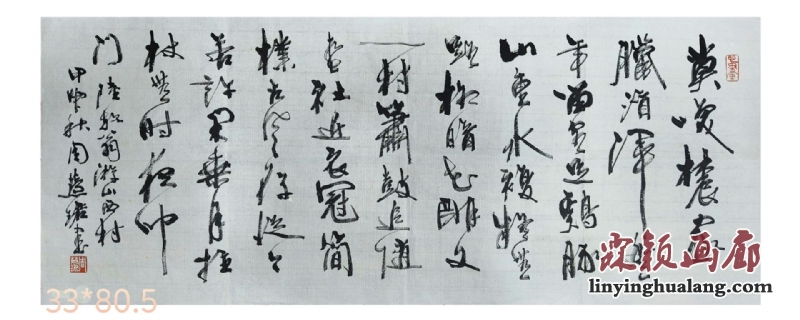 莫笑農家
臘酒渾豐
年留客足鷄豚
山重水複疑無
路柳暗花明又
一村簫鼓追随
春社近衣冠簡
樸古風存從今
若許閑乘月拄
杖無時夜叩
门 陸放翁游山西村
甲申秋周慧珺書
霖颖画廊
linyinghualang.com
33*80.5